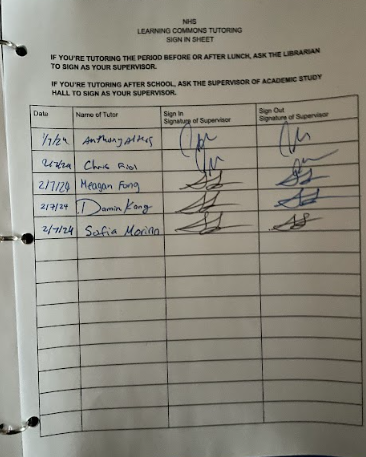 NHS
LEARNING COMMONS TUTORING
SIGN IN SHEET
IF YOU'RE TUTORING THE PERIOD BEFORE OR AFTER LUNCH, ASK THE LIBRARIAN
TO SIGN AS YOUR SUPERVISOR.
IF YOU'RE TUTORING AFTER SCHOOL, ASK THE SUPERVISOR OF ACADEMIC STUDY
HALL TO SIGN AS YOUR SUPERVISOR.
Date Name of Tutor Sign In Signature of Supervisor Sign Out Signature of Supervisor
Anthony
Chris
2/7/24 Meagan Fung
2/7/24 Damin Kang
2/7/24 Sofia